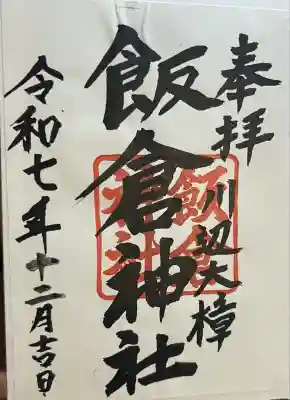 奉拝
川辺大樟
飯倉神社
飯倉神社
令和七年十二月吉日